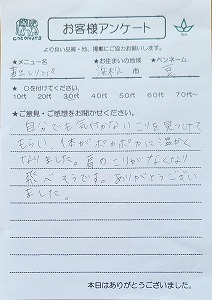 お客様アンケート
より良い品質・地、掲載にご協力お願いします。
★メニュー名 ★お住まいの地域 ★ペンネーム
浜松 市
★ ○を付けてください。
10代 20代 30代 40代 50代 60代 70代~
★ご意見・ご感想をお聞かせください。
自分でも気付かないこりを見つけて
もらい、体がポカポカに温かく
なりました。肩のこりがなくなり
飛べそうです。ありがとうござい
ました。
本日はありがとうございました。